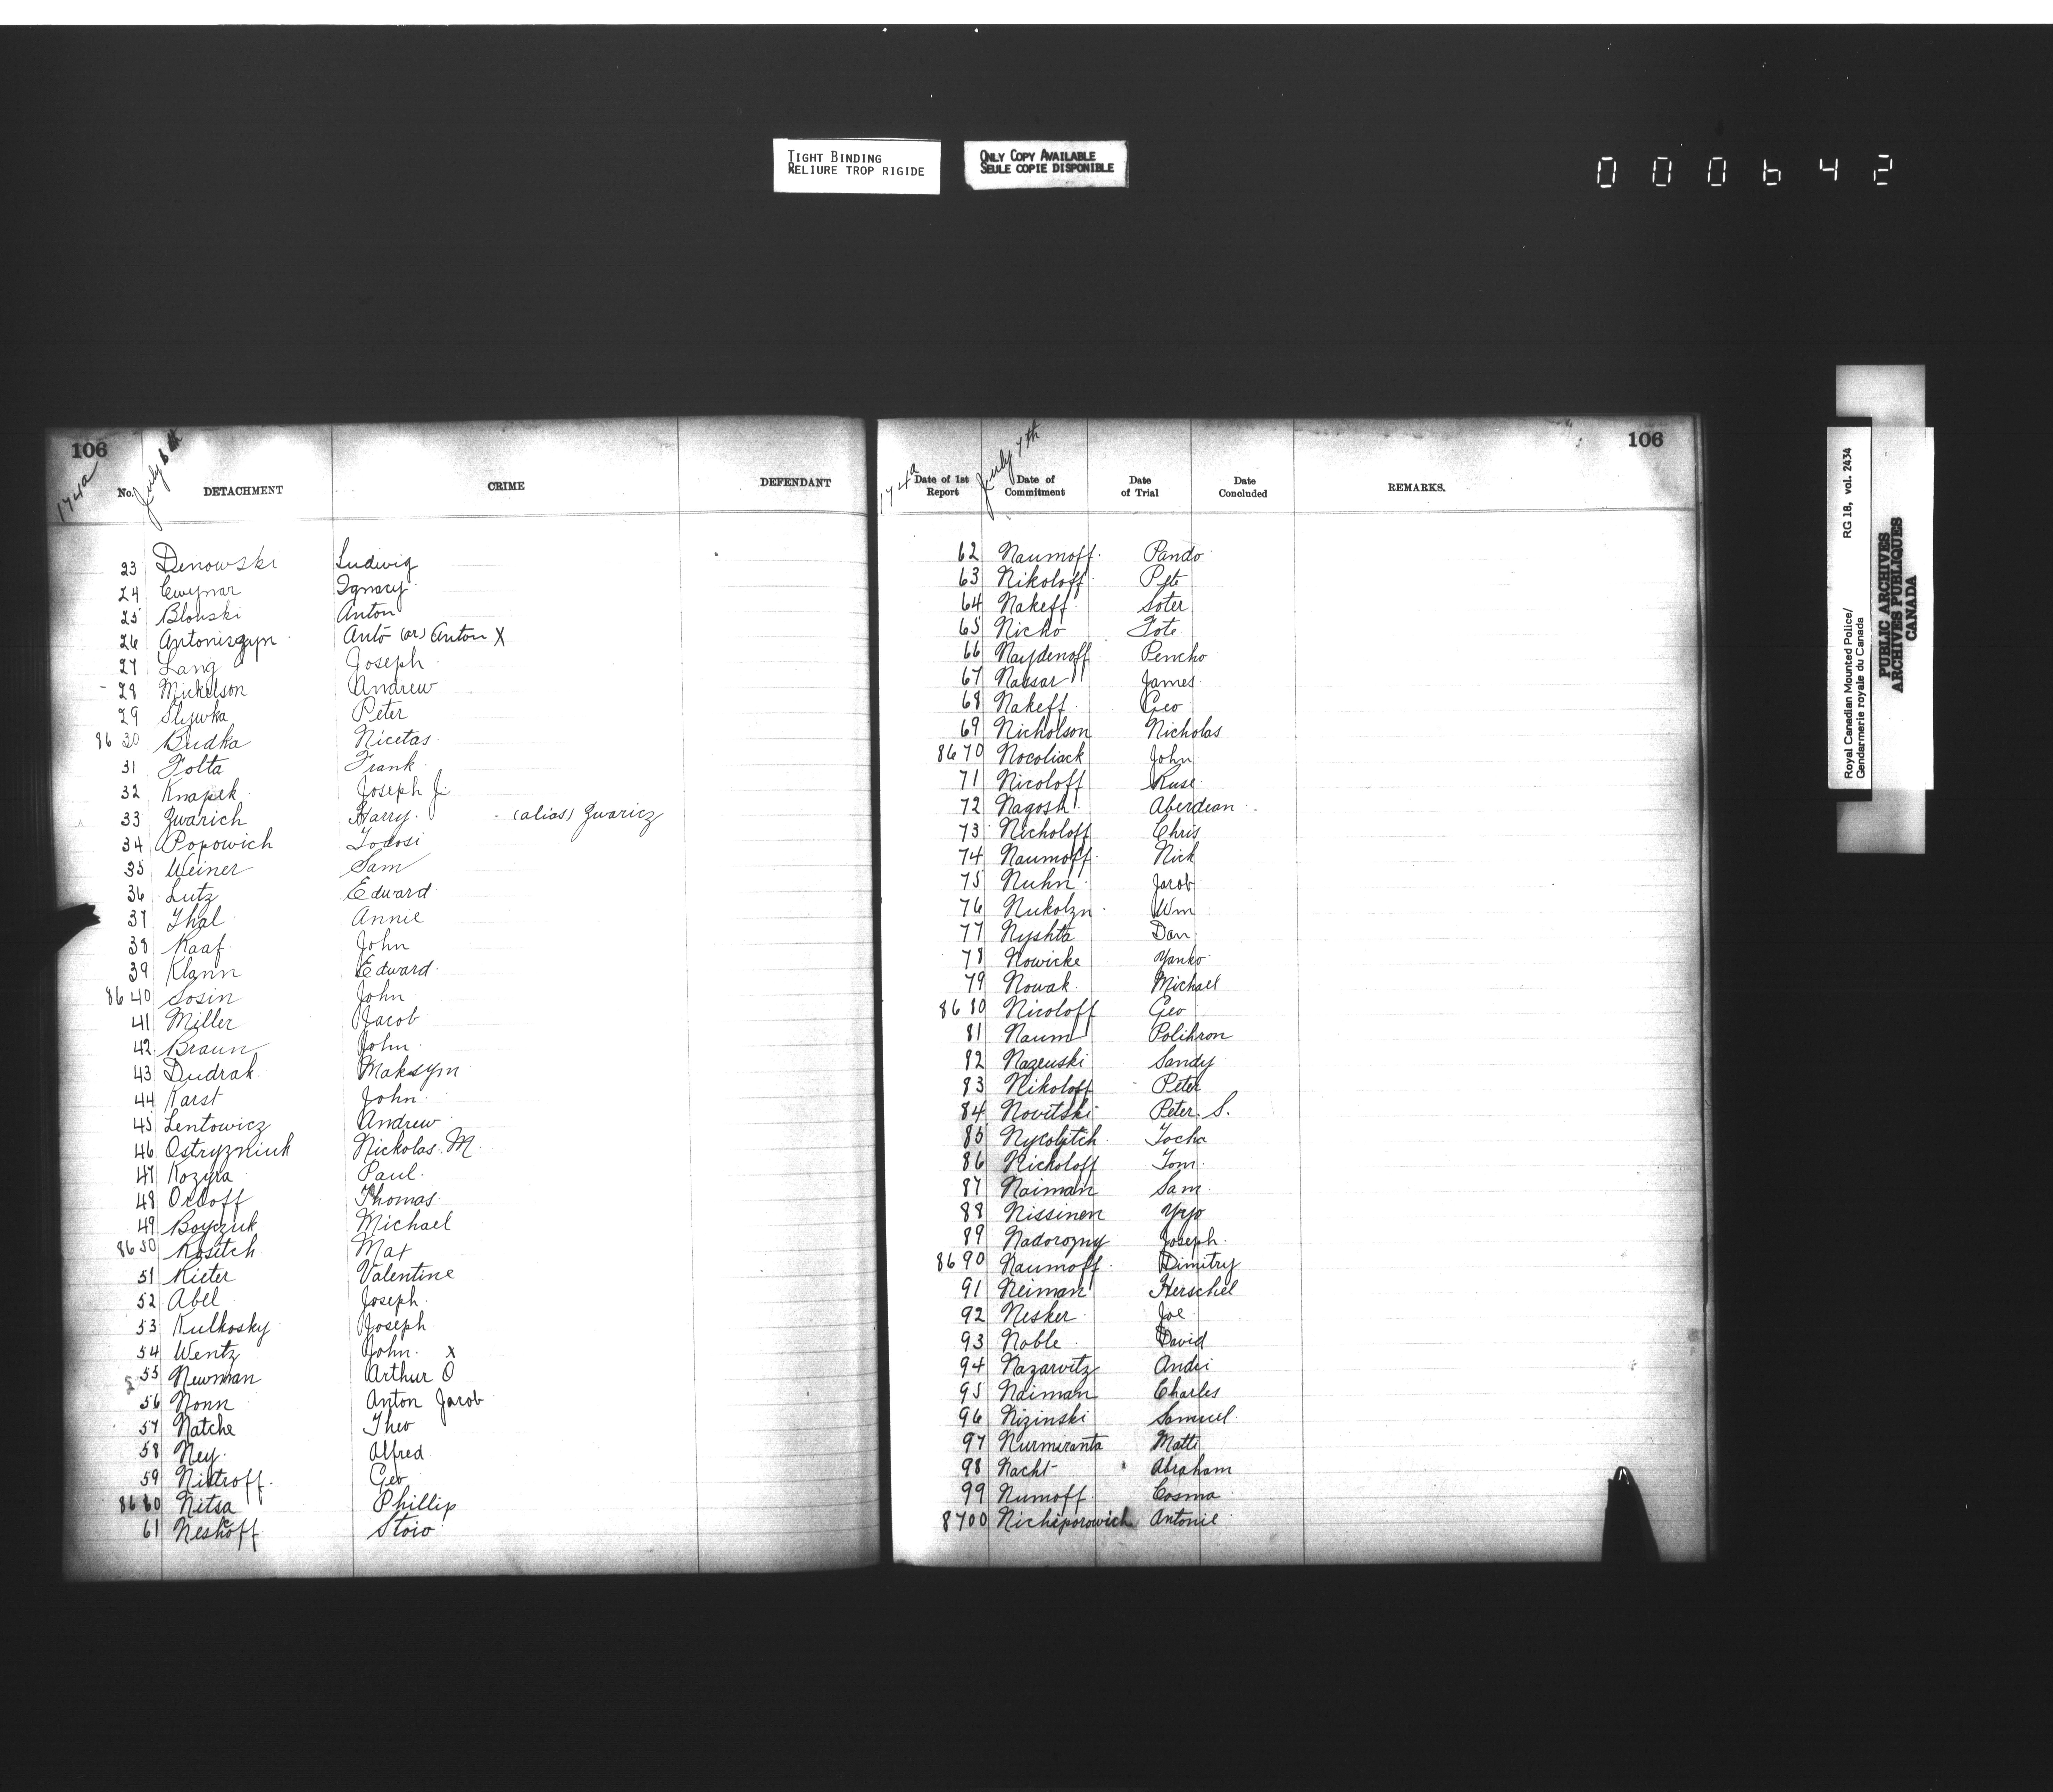 TIGHT BINDING
RELIURE TROP RIGIDE
ONLY COPY AVAILABLE
SEULE COPIE DISPONIBLE
000642
106
174a
July 6th
No. DETACHMENT CRIME DEFENDANT
23 Denowski Ludwig
24 Cwynar Ignacy
25 Blonski Anton
26 Antoniszyn Anto (or) Anton X
27 Lang Joseph
28 Mickelson Andrew
29 Slywka Peter
8630 Budka Nicetas
31 Folta Frank
32 Knapek Joseph J.
33 Zwarich Harry. (alias) Zwaricz
34 Popowich Todosi
35 Weiner Sam
36 Lutz Edward
37 Thal Annie
38 Raaf John
39 Klann Edward
8640 Sosin John
41 Miller Jacob
42 Braun John
43 Dudrak Maksym
44 Karst John
45 Lentowicz Andrew
46 Ostryzniuk Nickolas. M.
47 Kozyra Paul.
48 Orloff Thomas
49 Boyczuk Michael
8650 Kositch Mat
51 Rieter Valentine
52 Abel Joseph
53 Kulkosky Joseph
54 Wentz John. X
55 Newman Arthur O
56 Nonn Anton Jacob
57 Natche Theo
58 Ney. Alfred
59 Nistroff. Geo
8660 Nitsa Phillip
61 Neshoff Stoio
106
174a
July 7th
Date of 1st Report Date of Commitment Date of Trial Date Concluded REMARKS.
62 Naumoff Pando
63 Nikoloff Pete
64 Nakeff Soter
65 Nicho Tote
66 Naydenoff Pencho
67 Nassar James
68 Nakeff Geo
69 Nicholson Nicholas
8670 Nocoliack John
71 Nicoloff Ruse
72 Nagosh Aberdean
73 Nicholoff Chris
74 Naumoff Nick
75 Nuhn Jacob
76 Nukolzn Wm
77 Nyshta Dan
78 Nowicke Yanko
79 Nowak Michael
8680 Nicoloff Geo
81 Naum Polihron
82 Nazenski Sandy
83 Nikoloff Peter
84 Novitski Peter. S.
85 Nycolitch Tocha
86 Nicholoff Tom
87 Naiman Sam
88 Nissinen Yrjo
89 Nadorozny Joseph
8690 Naumoff Dimitry
91 Neiman Herschel
92 Nesker Joe
93 Noble David
94 Nazarvitz Andri
95 Naiman Charles
96 Nizinski Samuel
97 Nurmiranta Matti
98 Nacht Abraham
99 Numoff Cosma
8700 Nichiporowich Antonie
Royal Canadian Mounted Police/ RG 18, vol. 2434
Gendarmerie royale du Canada
PUBLIC ARCHIVES
ARCHIVES PUBLIQUES
CANADA